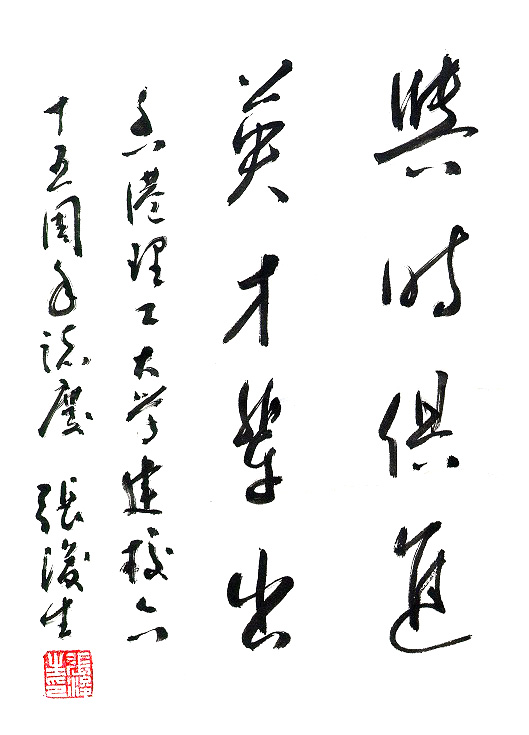 與時俱進
英才輩出
香港理工大学建校六
十五周年誌慶 張浚生
張浚生印